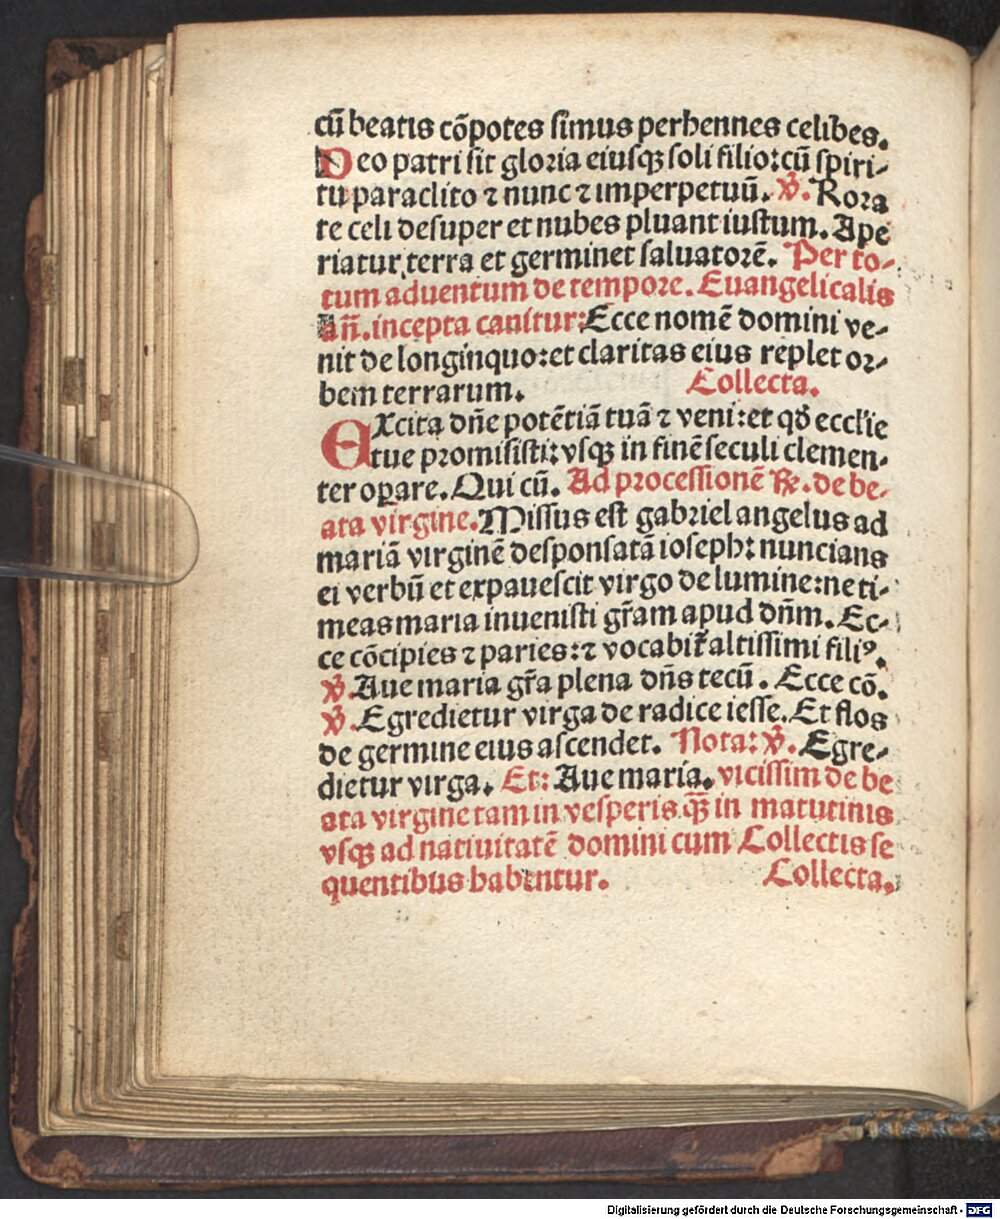 cū beatis cōpotes simus perhennes celibes.
Deo patri sit gloria eiusqꝫ soli filio: cū spiri-
tu paraclito ⁊ nunc ⁊ imperpetuū. ℣. Rora
te celi desuper et nubes pluant iustum. Ape
riatur terra et germinet saluatorē. Per to-
tum aduentum de tempore. Euangelicalis
añ. incepta canitur: Ecce nomē domini ve-
nit de longinquo: et claritas eius replet or-
bem terrarum. Collecta.
EXcita dñe potētiā tuā ⁊ veni: et qđ eccl'ie
tue promisisti: vsqꝫ in finē seculi clemen-
ter oꝑare. Qui cū. Ad processionē ℞. de be-
ata virgine. Missus est gabriel angelus ad
mariā virginē desponsatā ioseph: nuncians
ei verbū et expauescit virgo de lumine: ne ti-
meas maria inuenisti gr̄am apud dñm. Ec-
ce cōcipies ⁊ paries: ⁊ vocabit̄ altissimi filiꝰ.
℣. Aue maria gr̄a plena dñs tecū. Ecce cō.
℣. Egredietur virga de radice iesse. Et flos
de germine eius ascendet. Nota: ℣. Egre-
dietur virga. Et: Aue maria. vicissim de be
ata virgine tam in vesperis qꝫ̄ in matutinis
vsqꝫ ad natiuitatē domini cum Collectis se
quentibus habentur. Collecta.
Digitalisierung gefördert durch die Deutsche Forschungsgemeinschaft - DFG